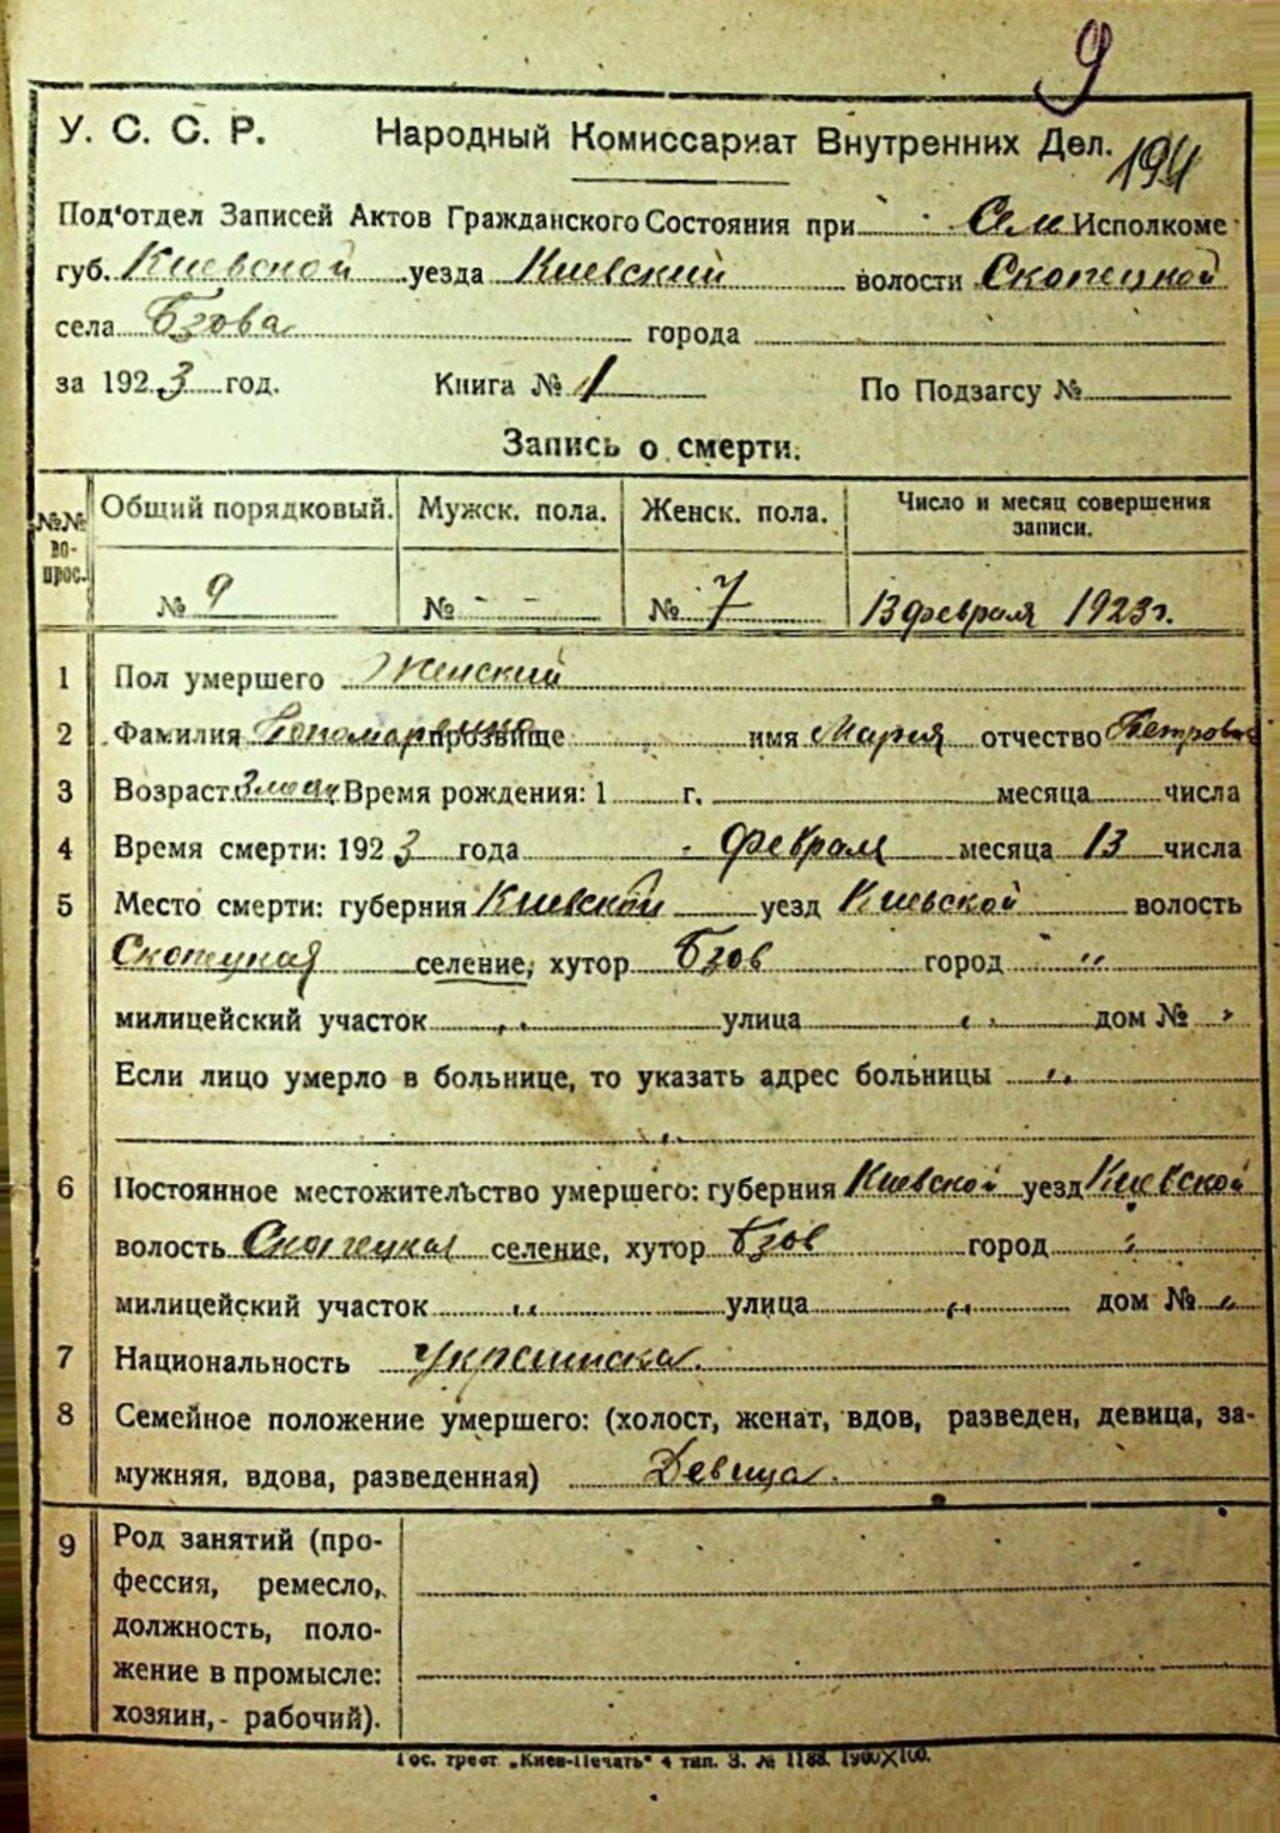 9
У. С. С. Р. Народный Комиссариат Внутренних Дел. 194
Под'отдел Записей Актов Гражданского Состояния при Сел Исполкоме
губ. Киевской уезда Киевский волости Скопецкой
села Бзова города
за 1923 год. Книга № 1 По Подзагсу №
Запись о смерти.
№№ вопрос. Общий порядковый. Мужск. пола. Женск. пола. Число и месяц совершения записи.
№ 9 № - - № 7 13 февраля 1923 г.
1 Пол умершего Женский
2 Фамилия прозвище имя Мария отчество Петровна
3 Возраст Время рождения: 1 г. месяца числа
4 Время смерти: 1923 года Февраля месяца 13 числа
5 Место смерти: губерния Киевской уезд Киевской волость
Скопецкая селение, хутор Бзов город "
милицейский участок " улица " дом № "
Если лицо умерло в больнице, то указать адрес больницы "
"
6 Постоянное местожительство умершего: губерния Киевской уезд Киевской
волость Скопецкая селение, хутор Бзов город "
милицейский участок " улица " дом № "
7 Национальность Украинска.
8 Семейное положение умершего: (холост, женат, вдов, разведен, девица, за-
мужняя, вдова, разведенная) Девица.
9 Род занятий (про-
фессия, ремесло,
должность, поло-
жение в промысле:
хозяин, - рабочий).
Гос. трест „Киев-Печать" 4 тип. З. № 1188. 1900×100.